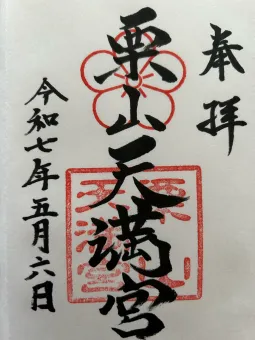 奉拝
栗山天満宮
令和七年五月六日